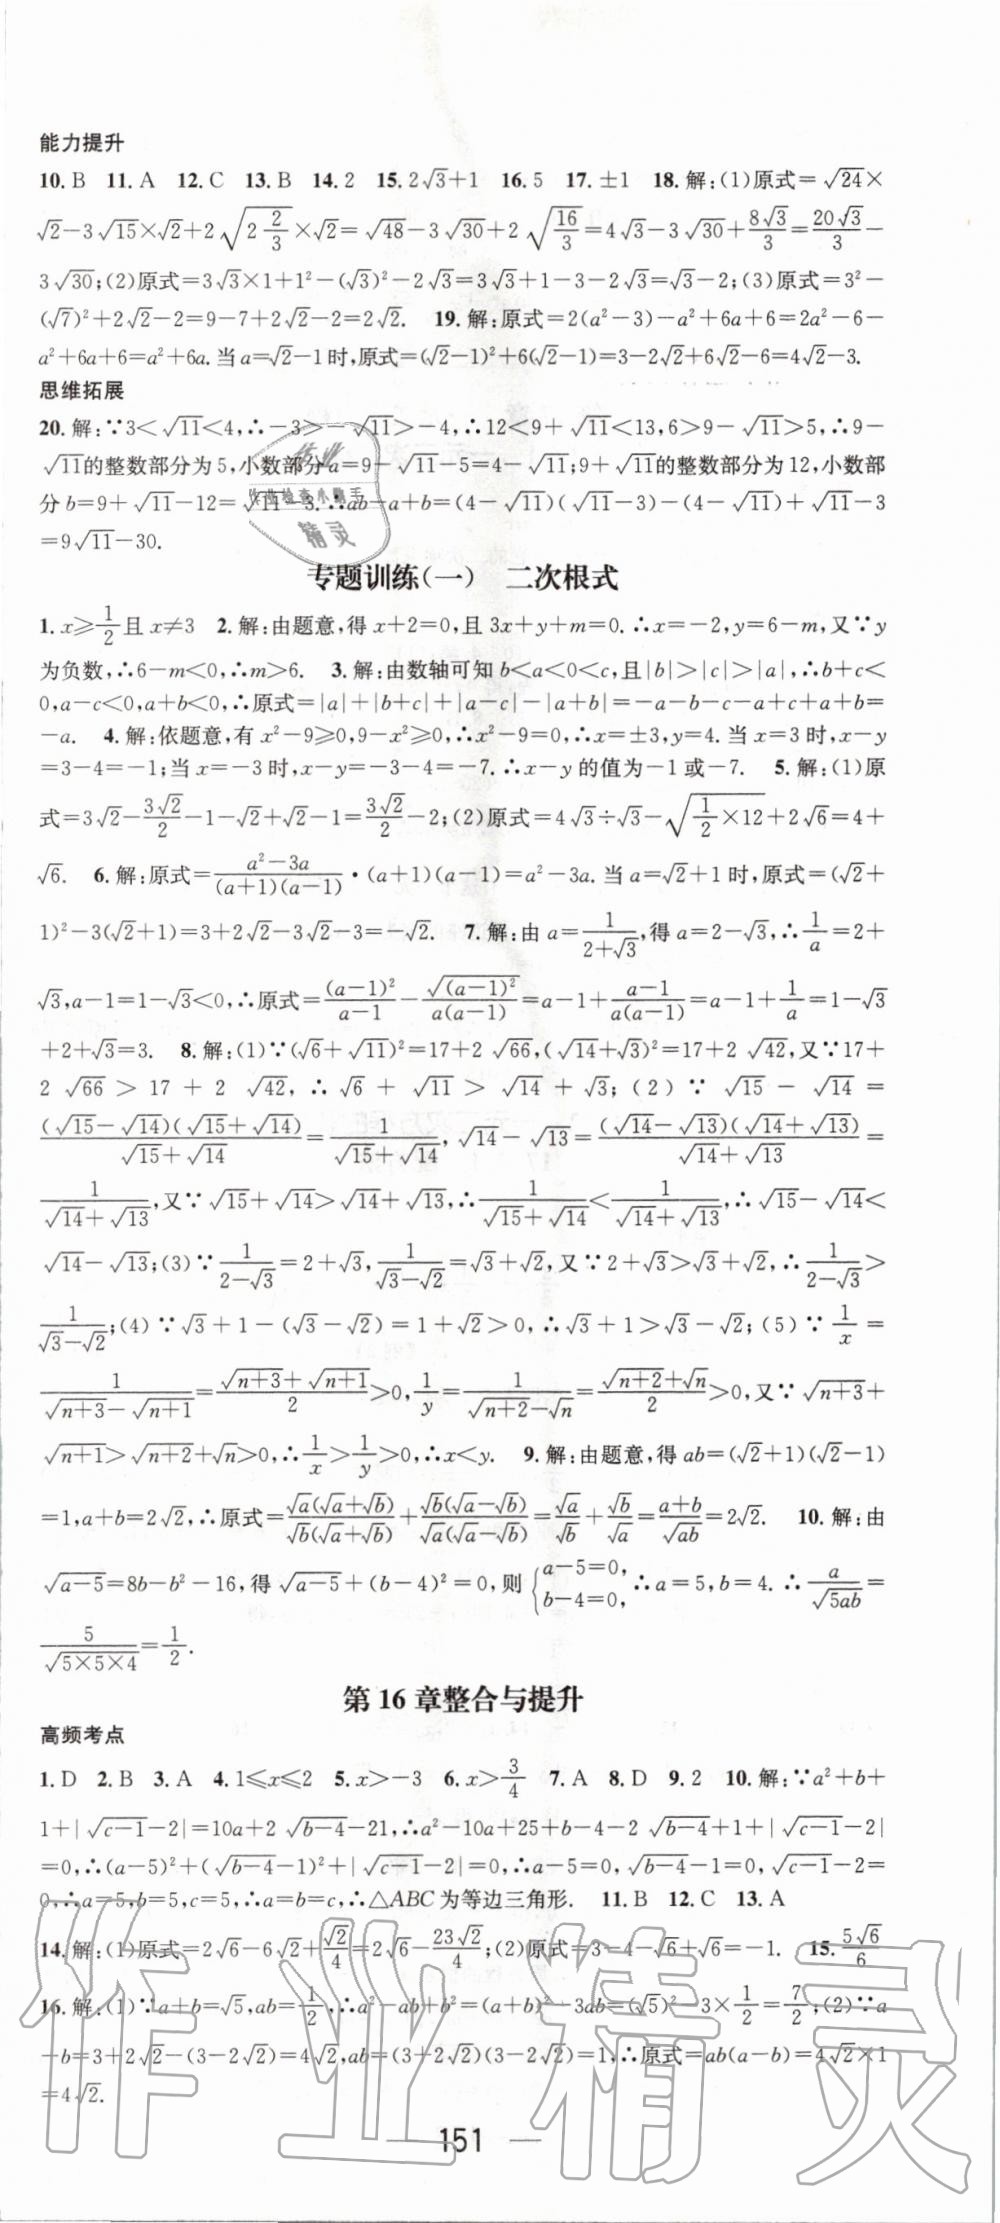 能力提升
10. B 11. A 12. C 13. B 14. 2 15. 2√3+1 16. 5 17. ±1 18. 解:(1)原式=√24×
√2-3√15×√2+2√(2 2/3)×√2=√48-3√30+2√(16/3)=4√3-3√30+8√3/3=20√3/3-
3√30;(2)原式=3√3×1+1²-(√3)²-2√3=3√3+1-3-2√3=√3-2;(3)原式=3²-
(√7)²+2√2-2=9-7+2√2-2=2√2. 19. 解:原式=2(a²-3)-a²+6a+6=2a²-6-
a²+6a+6=a²+6a.当a=√2-1时,原式=(√2-1)²+6(√2-1)=3-2√2+6√2-6=4√2-3.
思维拓展
20. 解:∵3<√11<4,∴-3>-√11>-4,∴12<9+√11<13,6>9-√11>5,∴9-
√11的整数部分为5,小数部分a=9-√11-5=4-√11;9+√11的整数部分为12,小数部
分b=9+√11-12=√11-3.∴ab-a+b=(4-√11)(√11-3)-(4-√11)+√11-3
=9√11-30.
专题训练(一) 二次根式
1. x≥1/2且x≠3 2. 解:由题意,得x+2=0,且3x+y+m=0.∴x=-2,y=6-m,又∵y
为负数,∴6-m<0,∴m>6. 3. 解:由数轴可知b<a<0<c,且|b|>|c|>|a|,∴b+c<
0,a-c<0,a+b<0,∴原式=|a|+|b+c|+|a-c|-|a+b|=-a-b-c-a+c+a+b=
-a. 4. 解:依题意,有x²-9≥0,9-x²≥0,∴x²-9=0,∴x=±3,y=4.当x=3时,x-y
=3-4=-1;当x=-3时,x-y=-3-4=-7.∴x-y的值为-1或-7. 5. 解:(1)原
式=3√2-3√2/2-1-√2+√2-1=3√2/2-2;(2)原式=4√3÷√3-√(1/2×12)+2√6=4+
√6. 6. 解:原式=(a²-3a)/((a+1)(a-1))·(a+1)(a-1)=a²-3a.当a=√2+1时,原式=(√2+
1)²-3(√2+1)=3+2√2-3√2-3=-√2. 7. 解:由a=1/(2+√3),得a=2-√3,∴1/a=2+
√3,a-1=1-√3<0,∴原式=(a-1)²/(a-1)-√((a-1)²)/(a(a-1))=a-1+(a-1)/(a(a-1))=a-1+1/a=1-√3
+2+√3=3. 8. 解:(1)∵(√6+√11)²=17+2√66,(√14+√3)²=17+2√42,又∵17+
2√66>17+2√42,∴√6+√11>√14+√3;(2)∵√15-√14=
(√15-√14)(√15+√14)/(√15+√14)=1/(√15+√14),√14-√13=(√14-√13)(√14+√13)/(√14+√13)=
1/(√14+√13),又∵√15+√14>√14+√13,∴1/(√15+√14)<1/(√14+√13),∴√15-√14<
√14-√13;(3)∵1/(2-√3)=2+√3,1/(√3-√2)=√3+√2,又∵2+√3>√3+√2,∴1/(2-√3)>
1/(√3-√2);(4)∵√3+1-(√3-√2)=1+√2>0,∴√3+1>√3-√2;(5)∵1/x=
1/(√(n+3)-√(n+1))=(√(n+3)+√(n+1))/2>0,1/y=1/(√(n+2)-√n)=(√(n+2)+√n)/2>0,又∵√(n+3)+
√(n+1)>√(n+2)+√n>0,∴1/x>1/y>0,∴x<y. 9. 解:由题意,得ab=(√2+1)(√2-1)
=1,a+b=2√2,∴原式=√a(√a+√b)/(√b(√a+√b))+√b(√a-√b)/(√a(√a-√b))=√a/√b+√b/√a=(a+b)/√(ab)=2√2. 10. 解:由
√(a-5)=8b-b²-16,得√(a-5)+(b-4)²=0,则{a-5=0, b-4=0,∴a=5,b=4.∴a/√(5ab)=
5/√(5×5×4)=1/2.
第16章整合与提升
高频考点
1. D 2. B 3. A 4. 1≤x≤2 5. x>-3 6. x>3/4 7. A 8. D 9. 2 10. 解:∵a²+b+
1+|√(c-1)-2|=10a+2√(b-4)-21,∴a²-10a+25+b-4-2√(b-4)+1+|√(c-1)-2|
=0,∴(a-5)²+(√(b-4)-1)²+|√(c-1)-2|=0,∴a-5=0,√(b-4)-1=0,√(c-1)-2=
0,∴a=5,b=5,c=5,∴a=b=c,∴△ABC为等边三角形. 11. B 12. C 13. A
14. 解:(1)原式=2√6-6√2+√2/4=2√6-23√2/4;(2)原式=3-4-√6+√6=-1. 15. 5√6/6
16. 解:(1)∵a+b=√5,ab=1/2,∴a²-ab+b²=(a+b)²-3ab=(√5)²-3×1/2=7/2;(2)∵a
-b=3+2√2-(3-2√2)=4√2,ab=(3+2√2)(3-2√2)=1,∴原式=ab(a-b)=4√2×1
=4√2.
151
作业
作业检查小助手
精灵
作业精灵